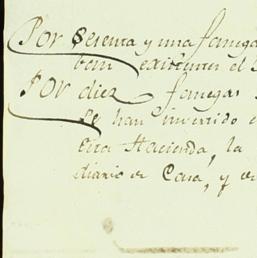 Por sesenta y una fanega
existentes el
Por diez fanegas
se han invertido
esta Hacienda, la
diario de Casa, y